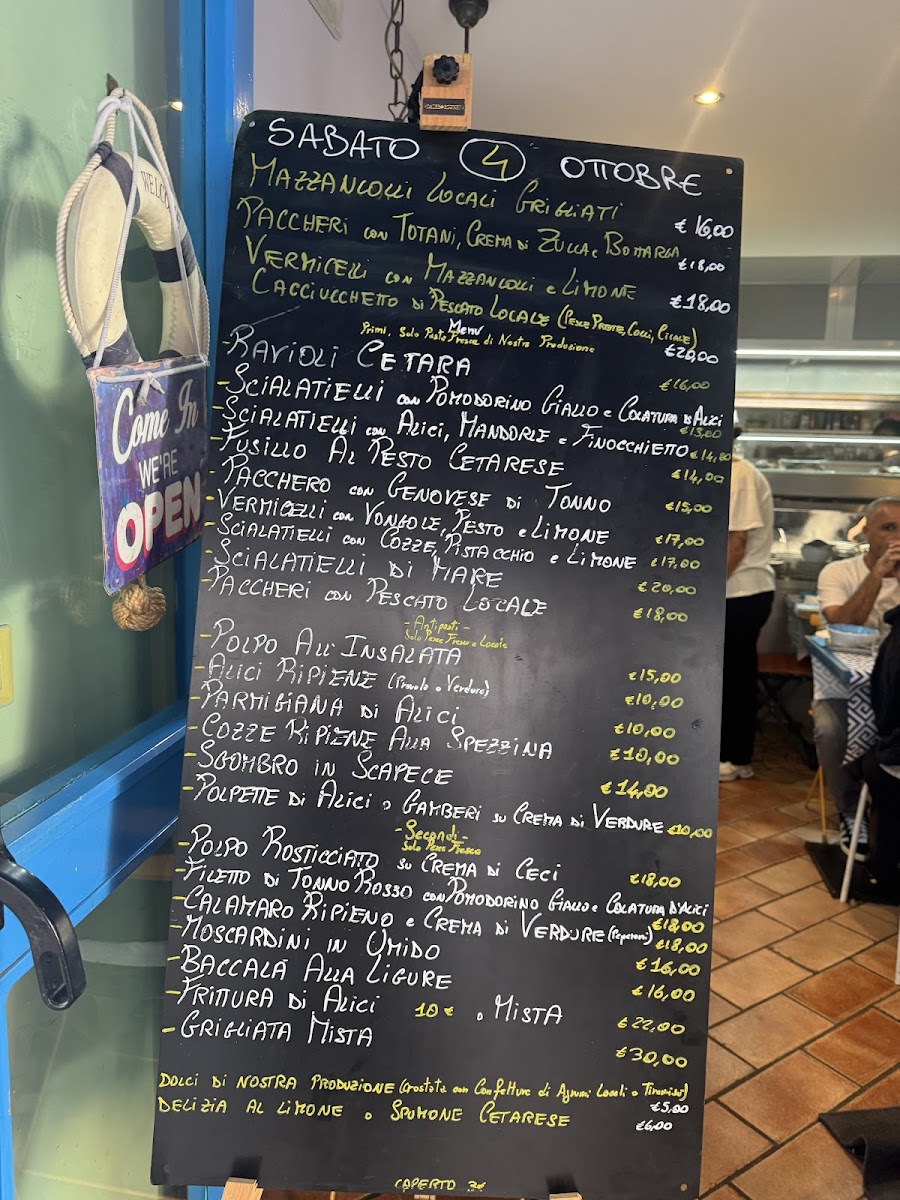 SABATO 4 OTTOBRE
MAZZANCOLLI LOCALI GRIGLIATI € 16,00
PACCHERI con TOTANI, CREMA DI ZUCCA e BOTTARGA €18,00
VERMICELLI con MAZZANCOLLI e LIMONE €18,00
CACCIUCCHETTO DI PESCATO LOCALE (PESCE PRETE, COCCI, CICALE) €20,00
Menu
Primi, Solo Pasta Fresca di Nostra Produzione
-RAVIOLI CETARA €16,00
-SCIALATIELLI con POMODORINO GIALLO e COLATURA DI ALICI €13,00
-SCIALATIELLI con ALICI, MANDORLE e FINOCCHIETTO €14,00
-FUSILLO AL PESTO CETARESE €14,00
-PACCHERO con GENOVESE DI TONNO €15,00
-VERMICELLI con VONGOLE, PESTO e LIMONE €17,00
-SCIALATIELLI con COZZE, PISTACCHIO e LIMONE €17,00
-SCIALATIELLI DI MARE €20,00
-PACCHERI con PESCATO LOCALE €18,00
-Antipasti-
Solo Pesce Fresco e Locale
-POLPO ALL'INSALATA €15,00
-ALICI RIPIENE (Provola o Verdure) €10,00
-PARMIGIANA DI ALICI €10,00
-COZZE RIPIENE ALLA SPEZZINA €10,00
-SGOMBRO IN SCAPECE €14,00
-POLPETTE DI ALICI o GAMBERI su CREMA DI VERDURE €10,00
-Secondi-
Solo Pesce Fresco
-POLPO ROSTICCIATO su CREMA DI CECI €18,00
-FILETTO DI TONNO ROSSO con POMODORINO GIALLO e COLATURA D'ALICI €18,00
-CALAMARO RIPIENO e CREMA DI VERDURE (Peperoni) €18,00
-MOSCARDINI IN UMIDO €16,00
-BACCALÀ ALLA LIGURE €16,00
-FRITTURA DI ALICI 10€ o MISTA €22,00
-GRIGLIATA MISTA €30,00
DOLCI DI NOSTRA PRODUZIONE (Crostata con Confetture di Agrumi Locali o Tiramisù) €5,00
DELIZIA AL LIMONE o SPUMONE CETARESE €6,00
COPERTO 2€
WELCOME
Come In
WE'RE
OPEN